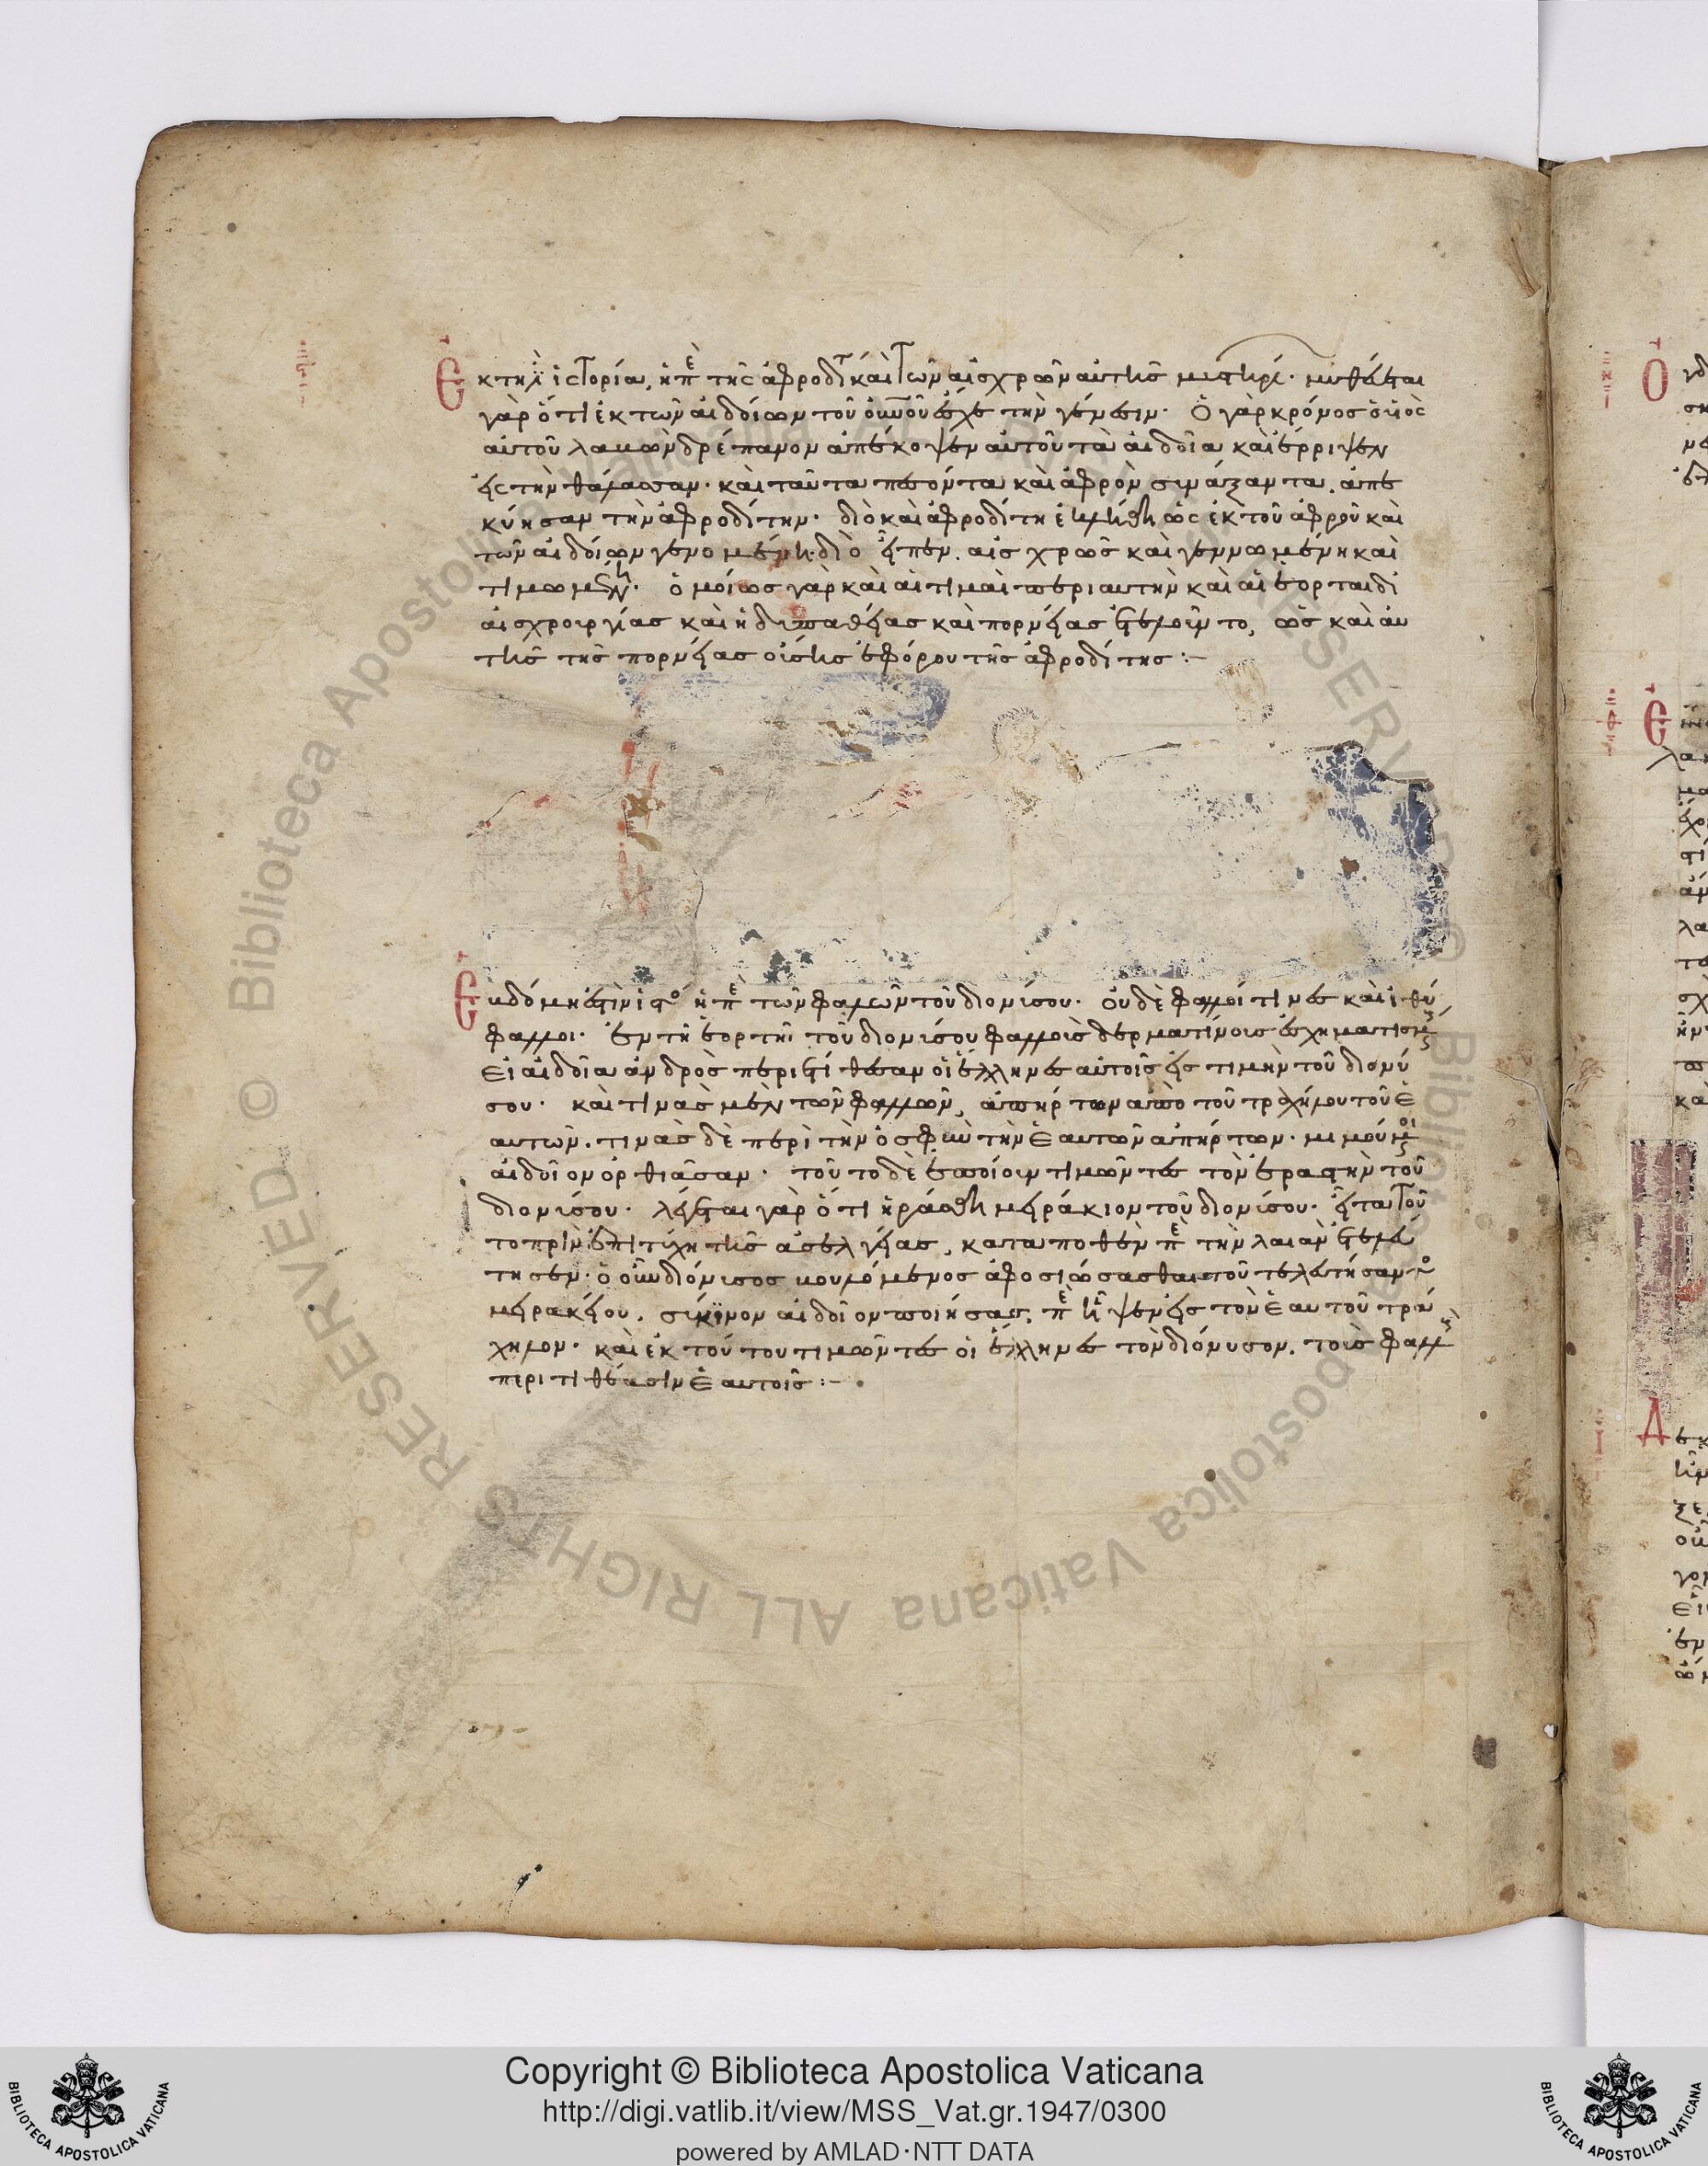 Ἕκτη ἱστορία, ἡ π τῆς ἀφροδίτ καὶ τῶν αἰσχρῶν αὐτῆς μυστηρί. μυθεύεται
γὰρ ὅτι ἐκ τῶν αἰδοίων τοῦ οὐνοῦ ἔσχε τὴν γένεσιν. Ὁ γὰρ κρόνος ὁ ὑιὸς
αὐτοῦ λαβὼν δρέπανον ἀπέκοψεν αὐτοῦ τὰ αἰδοῖα καὶ ἔρριψεν
εἰς τὴν θάλασσαν. καὶ ταῦτα πεσόντα καὶ ἀφρὸν συνάξαντα, ἀπε
κύησαν τὴν ἀφροδίτην. διὸ καὶ ἀφροδίτη ἐκλήθη ὡς ἐκ τοῦ ἀφροῦ καὶ
τῶν αἰδοίων γενομένη. διὸ εἶπεν. αἰσχρῶς καὶ γεννωμένη καὶ
τιμωμένη. ὁμοίως γὰρ καὶ αἱ τιμαὶ περι αυτὴν καὶ αἱ ἑορταὶ δι
αἰσχρουργίας καὶ ἡδυπαθείας καὶ πορνείας ἐτελοῦντο, ὡς καὶ αυ
τῆς τῆς πορνείας οὔσης ἐφόρου τῆς ἀφροδίτης :–
Ἑβδόμη ἐστὶν ἱστο ἡ π τῶν φαλλῶν τοῦ διονύσου. Οὐδὲ φαλλοί τινες καὶ ἰθύ
φαλλοι. ἐν τῆ ἑορτῆ τοῦ διονύσου φαλλοὶς δερματίνοις ἐσχηματισμ
Εἰ αἰδοῖα ἀνδρὸς περιετίθεσαν οἱ ἕλληνες αὐτοῖς εἰς τιμὴν τοῦ διονύ
σου. καὶ τινὰς μὲν τῶν φαλλῶν, ἀπήρτων ἀπὸ τοῦ τραχήλου τοῦ ἑ
αυτῶν. τινὰς δὲ περὶ τὴν ὀσφὺν τὴν ἑαυτῶν ἀπήρτων. μιμούμ
αἰδοῖον ὀρθιᾶσαν. τοῦτο δὲ ἐποίουν τιμῶντες τὸν ἐραστὴν τοῦ
διονύσου. λέγεται γὰρ ὅτι ἠράσθη μειράκιον τοῦ διονύσου. εἶτα τοῦ
το πρὶν ἐπιτύχη τῆς ἀσελγείας, καταποθὲν π τὴν λαιὰν ἐτελεύ
τησεν. ὁ οὖν διόνυσος βουλόμενος ἀφοσιώσασθαι τοῦ τελευτήσαντο
μειρακείου. σύκινον αἰδοῖον ποιήσας, π ῆψεν εἰς τὸν ἑαυτοῦ τρά
χηλον. καὶ ἐκ τούτου τιμῶντες οἱ ἕλληνες τὸν διόνυσον. τοὺς φαλλ
περιτιθέασιν ἑαυτοῖς :–
Copyright © Biblioteca Apostolica Vaticana
http://digi.vatlib.it/view/MSS_Vat.gr.1947/0300
powered by AMLAD·NTT DATA
BIBLIOTECA APOSTOLICA VATICANA
BIBLIOTECA APOSTOLICA VATICANA
© Biblioteca Apostolica Vaticana ALL RIGHTS RESERVED